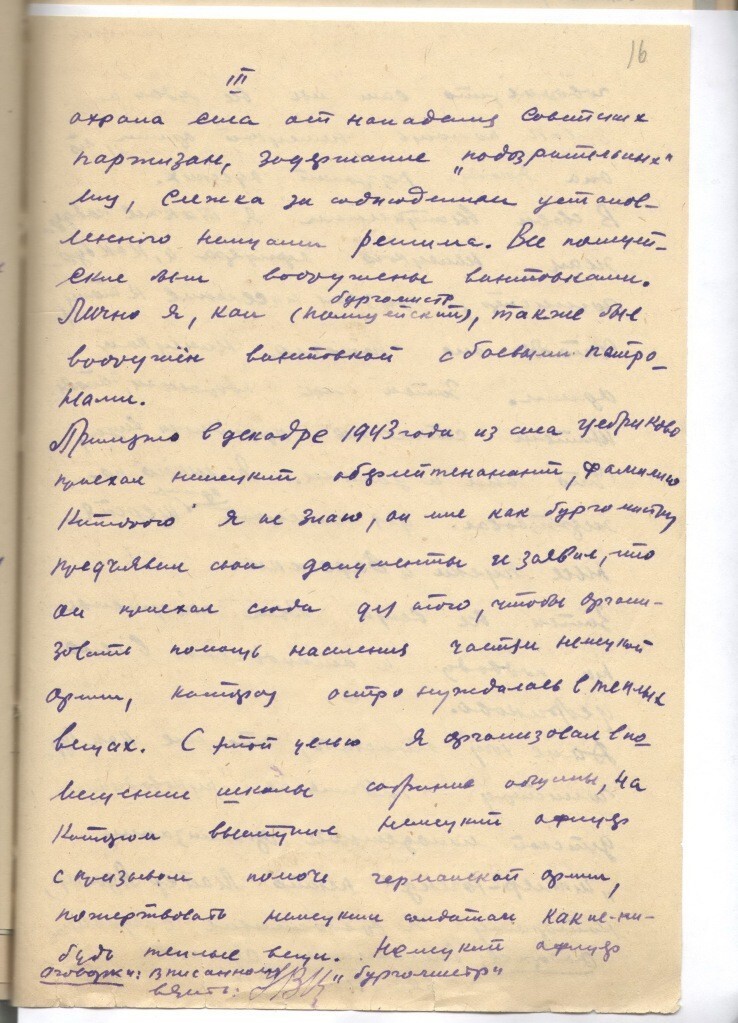 16
III
охрана села от нападения советских
партизан, задержание "подозрительных"
лиц, слежка за соблюдением установ-
ленного немцами режима. Все полицей-
ские были вооружены винтовками.
бургомистр
Лично я, как (полицейский), также был
вооружён винтовкой с боевыми патро-
нами.
Примерно в декабре 1943 года из села Цебриково
приехал немецкий оберлейтенант, фамилию
которого я не знаю, он мне как бургомистру
предъявил свои документы и заявил, что
он приехал сюда для этого, чтобы органи-
зовать помощь населения частям немецкой
армии, которая остро нуждалась в теплых
вещах. С этой целью я организовал в по-
мещении школы собрание общины, на
котором выступил немецкий офицер
с призывом помочь германской армии,
пожертвовать немецким солдатам какие-ни-
будь теплые вещи. Немецкий офицер
Оговорки: вписанному "бургомистр"
верить: